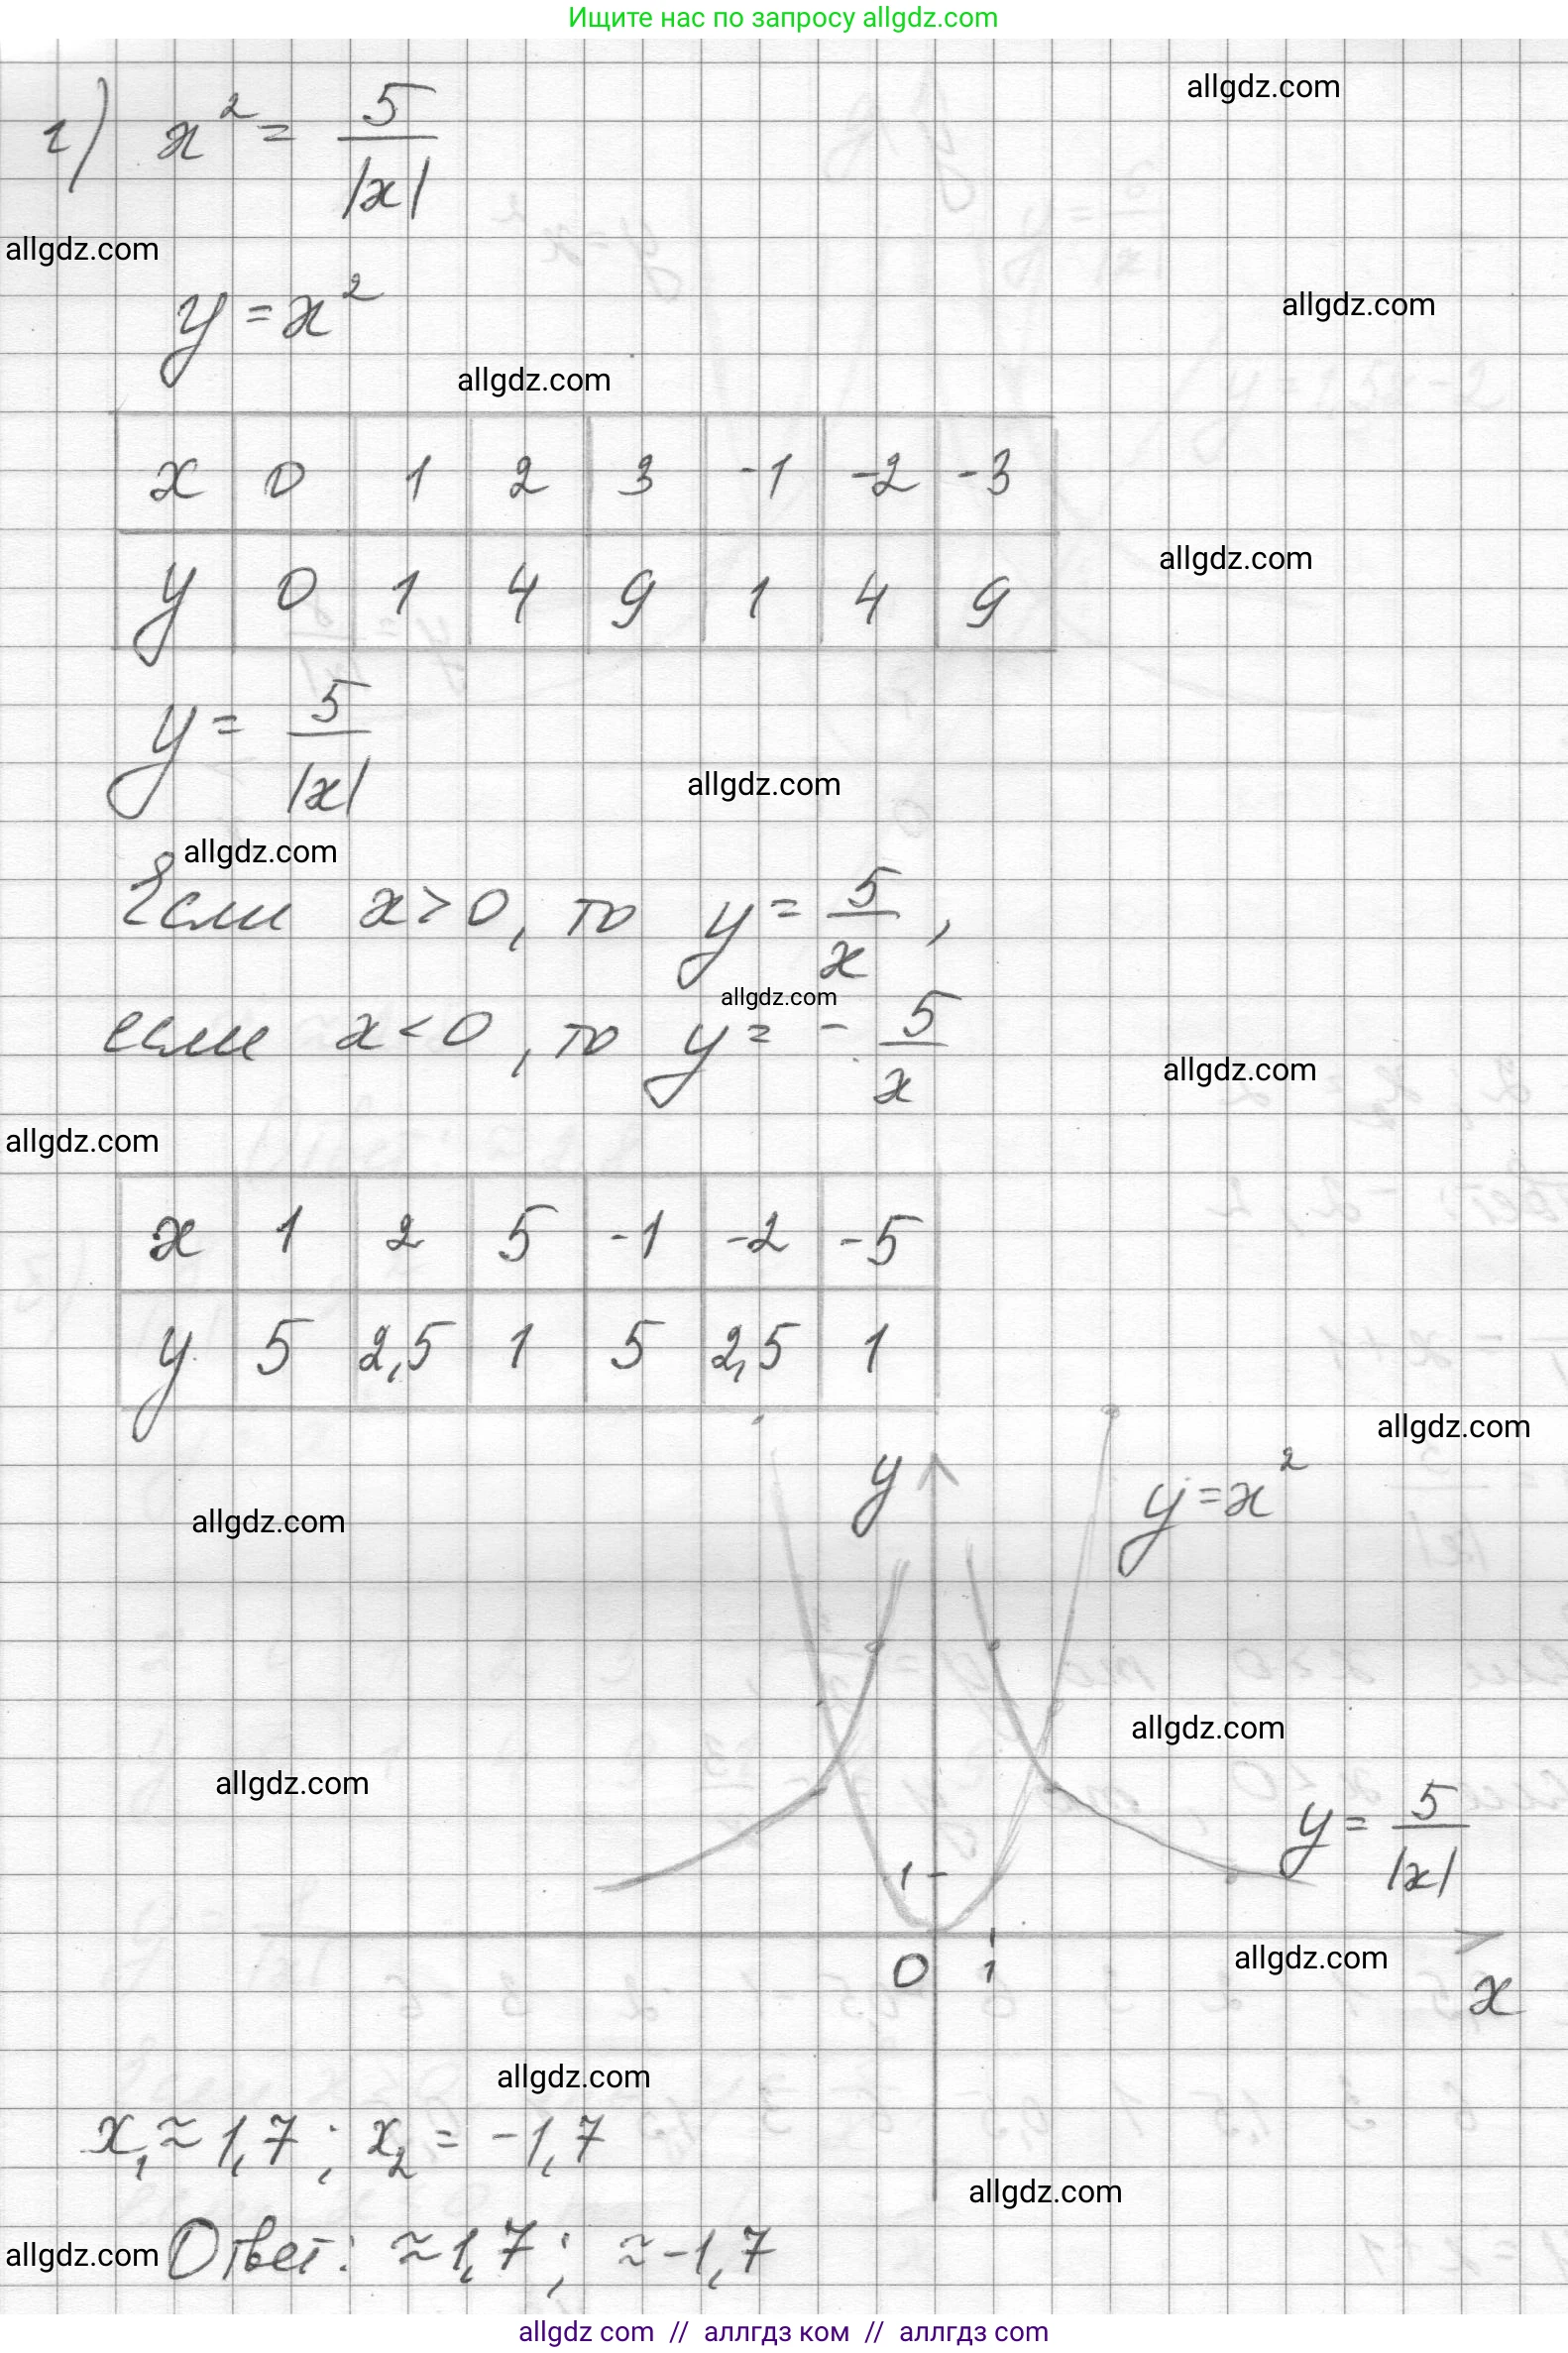 Ищите нас по запросу allgdz.com
allgdz.com
г) x² = 5/|x|
allgdz.com
y = x²
allgdz.com
allgdz.com
x 0 1 2 3 -1 -2 -3
allgdz.com
y 0 1 4 9 1 4 9
y = 5/|x|
allgdz.com
allgdz.com
Если x > 0, то y = 5/x,
allgdz.com
если x < 0, то y = - 5/x
allgdz.com
allgdz.com
x 1 2 5 -1 -2 -5
y 5 2,5 1 5 2,5 1
allgdz.com
y
y = x²
allgdz.com
allgdz.com
allgdz.com
y = 5/|x|
1
allgdz.com
0 1
x
allgdz.com
x₁ ≈ 1,7; x₂ = -1,7
allgdz.com
allgdz.com
Ответ: ≈ 1,7; ≈ -1,7
allgdz com // аллгдз ком // аллгдз com